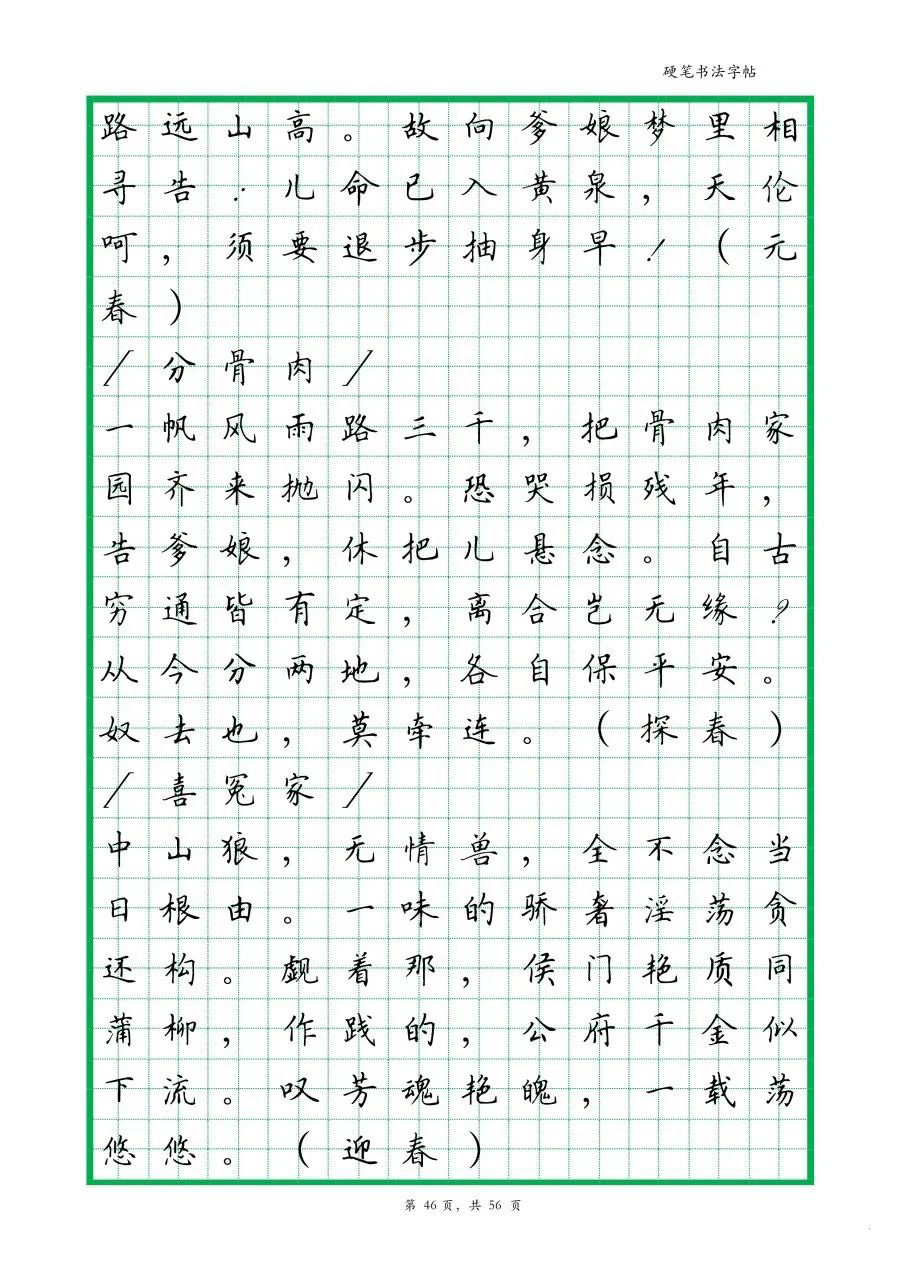 硬笔书法字帖
路远山高。故向爹娘梦里相
寻告:儿命已入黄泉,天伦
呵,须要退步抽身早!(元
春)
/分骨肉/
一帆风雨路三千,把骨肉家
园齐来抛闪。恐哭损残年,
告爹娘,休把儿悬念。自古
穷通皆有定,离合岂无缘?
从今分两地,各自保平安。
奴去也,莫牵连。(探春)
/喜冤家/
中山狼,无情兽,全不念当
日根由。一味的骄奢淫荡贪
还构。觑着那,侯门艳质同
蒲柳,作践的,公府千金似
下流。叹芳魂艳魄,一载荡
悠悠。(迎春)
第 46 页,共 56 页